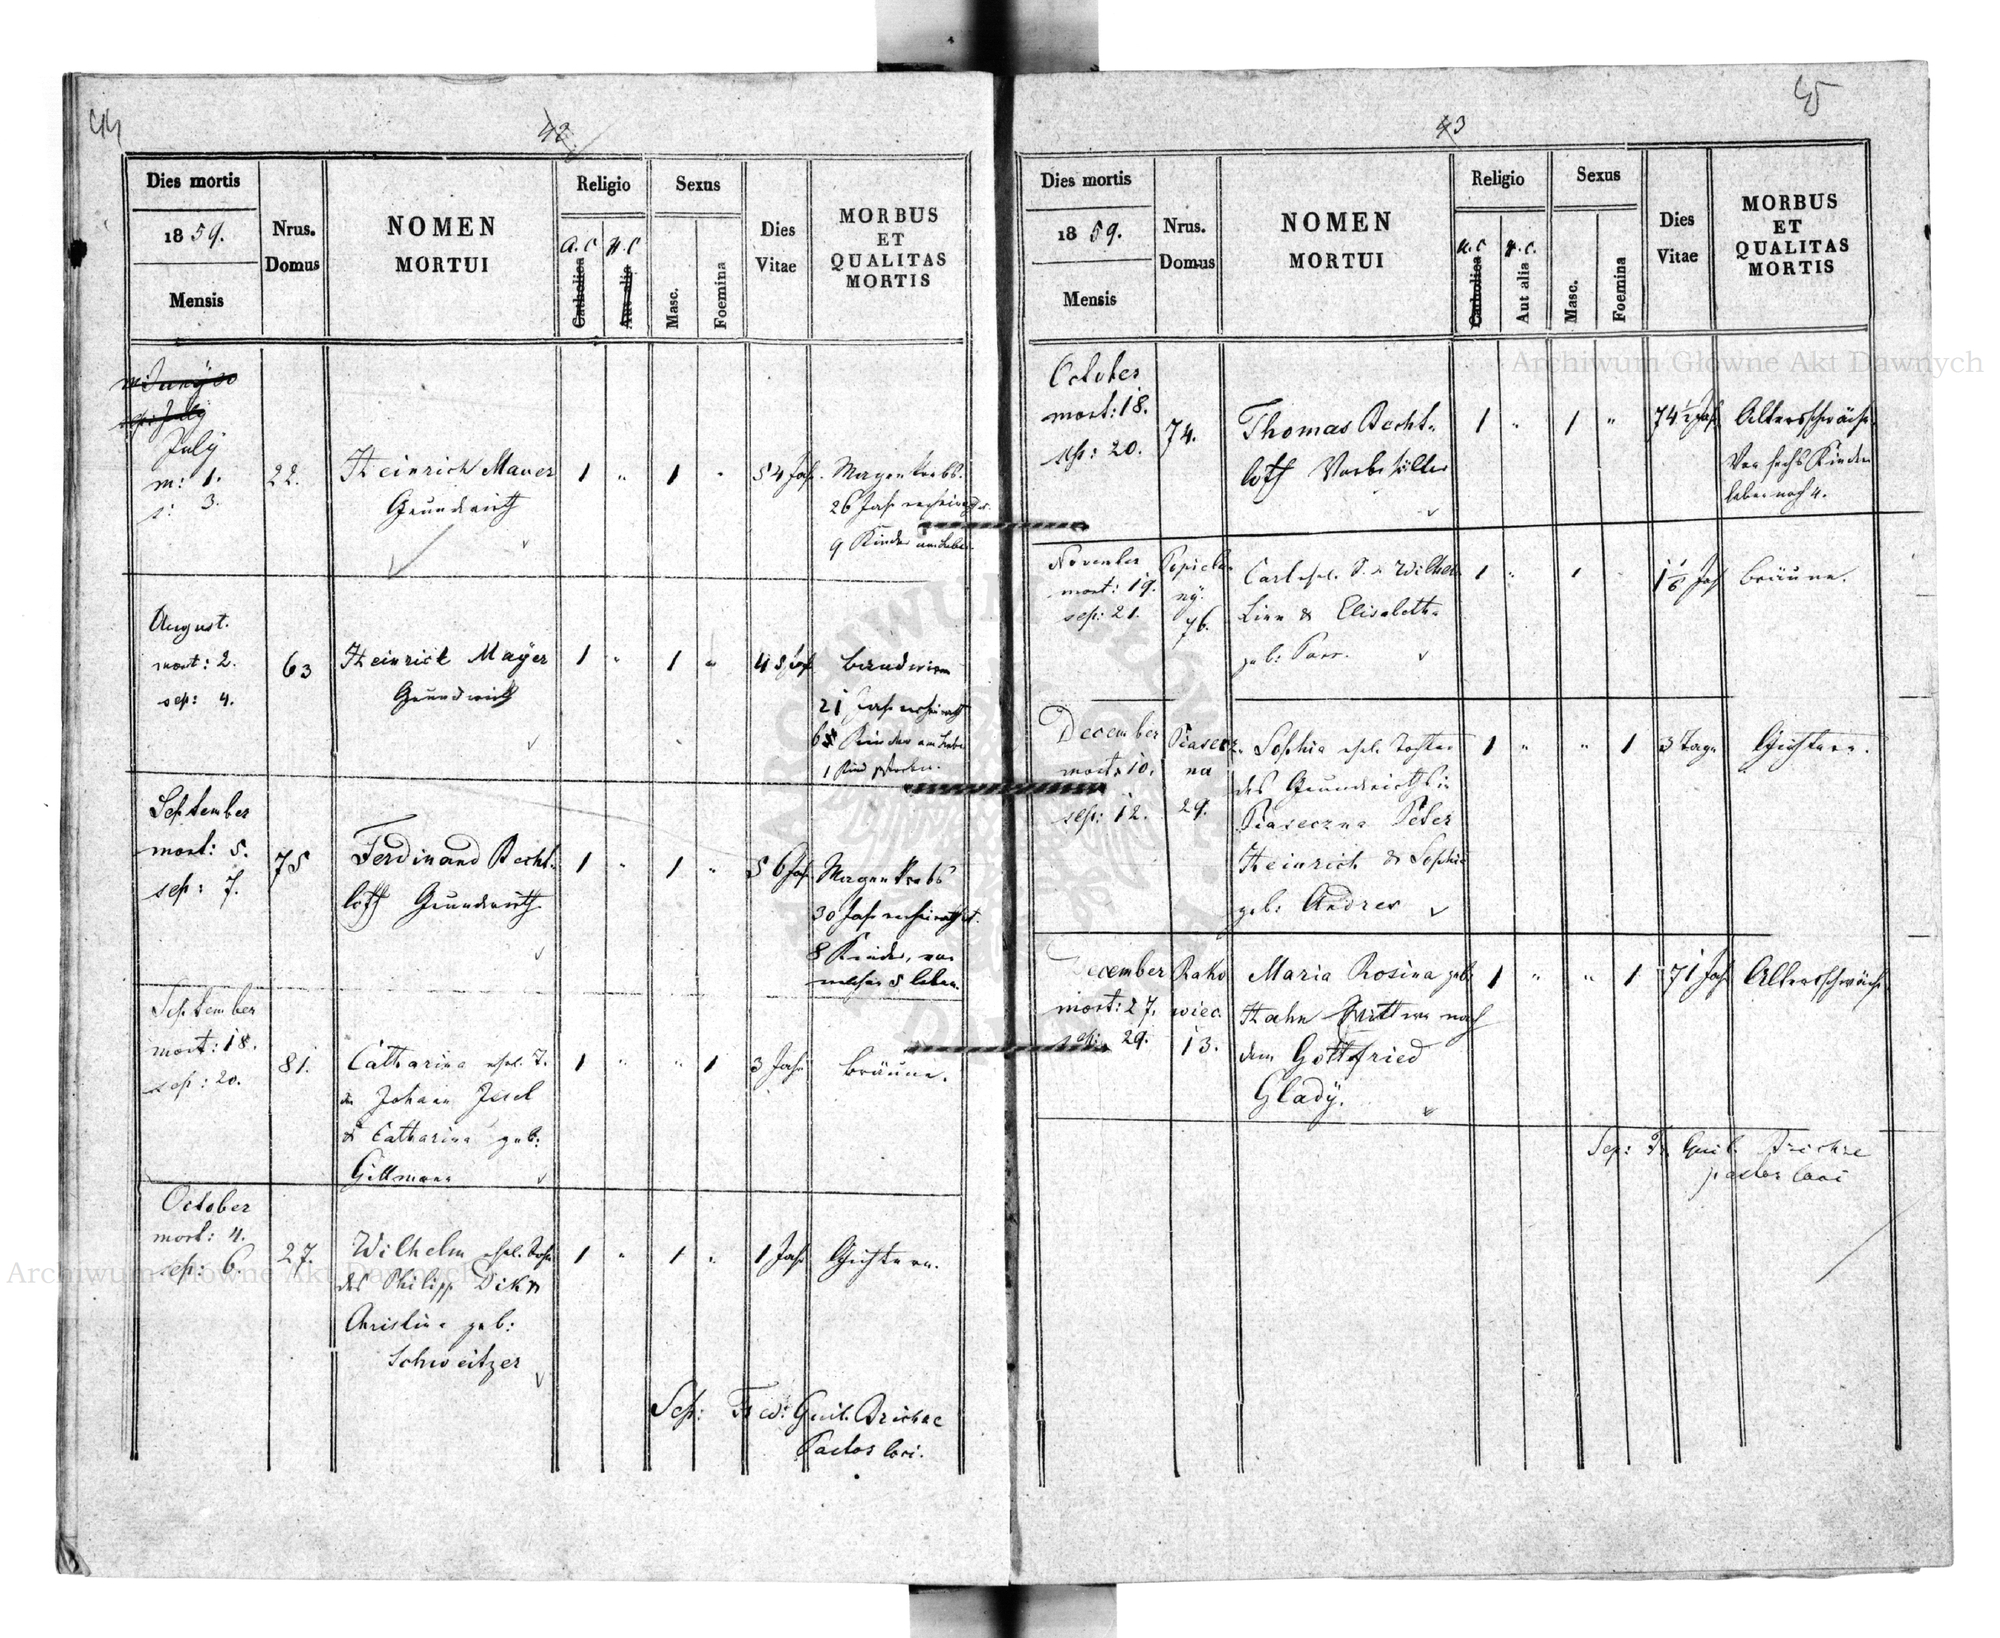 44
42
Dies mortis
1859.
Mensis
Nrus.
Domus
NOMEN
MORTUI
Religio
A.C
H.C
Catholica
Aut alia
Sexus
Masc.
Foemina
Dies
Vitae
MORBUS
ET
QUALITAS
MORTIS
July
m: 1.
s: 3.
22.
Heinrich Mauer
Grundwirth
1 " 1 "
54 Jahr
Magenkrebs.
26 Jahr verheirathet
9 Kinder am Leben
August.
mort: 2.
sep: 4.
63
Heinrich Mayer
Grundwirth
1 " 1 "
21 Jahr verheirath
Kinder am Leben
1 Kind gestorben.
September
mort: 5.
sep: 7.
75
Ferdinand Becht-
loff Grundwirth
1 " 1 "
56 Jahr
Magenkrebs
30 Jahr verheirathet.
8 Kinder, von
welchen 5 leben.
September
mort: 18.
sep: 20.
81.
Catharina ehel. T.
des Johann Jesel
& Catharina geb:
Gillmann
1 " " 1
3 Jahr
Bräune.
October
mort: 4.
sep: 6.
27.
Wilhelm ehel. Sohn
des Philipp Dik &
Christina geb:
Schweitzer
1 " 1 "
1 Jahr
Gichtern.
Sep: Fred: Guil.
Pastor loci.
45
43
Dies mortis
1859.
Mensis
Nrus.
Domus
NOMEN
MORTUI
Religio
A.C
H.C.
Catholica
Aut alia
Sexus
Masc.
Foemina
Dies
Vitae
MORBUS
ET
QUALITAS
MORTIS
October
mort: 18.
sep: 20.
74.
Thomas Becht-
loff
1 " 1 "
74 1/2 Jahr
Altersschwäche
Von sechs Kindern
leben noch 4.
November
mort: 19.
sep: 21.
76.
Carl ehel. S. d. Wilhelm
Linn & Elisabeth
geb:
1 " 1
Bräune.
December
mort: 10.
sep: 12.
Piasecz-
na
29.
Sophia ehel. Tochter
des Grundwirths in
Piaseczna Peter
Heinrich & Sophia
geb: Andres
1 " " 1
3 Tage
Gichtern.
December
mort: 27.
sep: 29.
Rako
wiec.
13.
Maria Rosina geb:
Hahn Wittwe nach
dem Gottfried
Glady.
1 " " 1
71 Jahr
Altersschwäche
Sep: Fr. Guil.
pastor loci
Archiwum Główne Akt Dawnych
Archiwum Główne Akt Dawnych